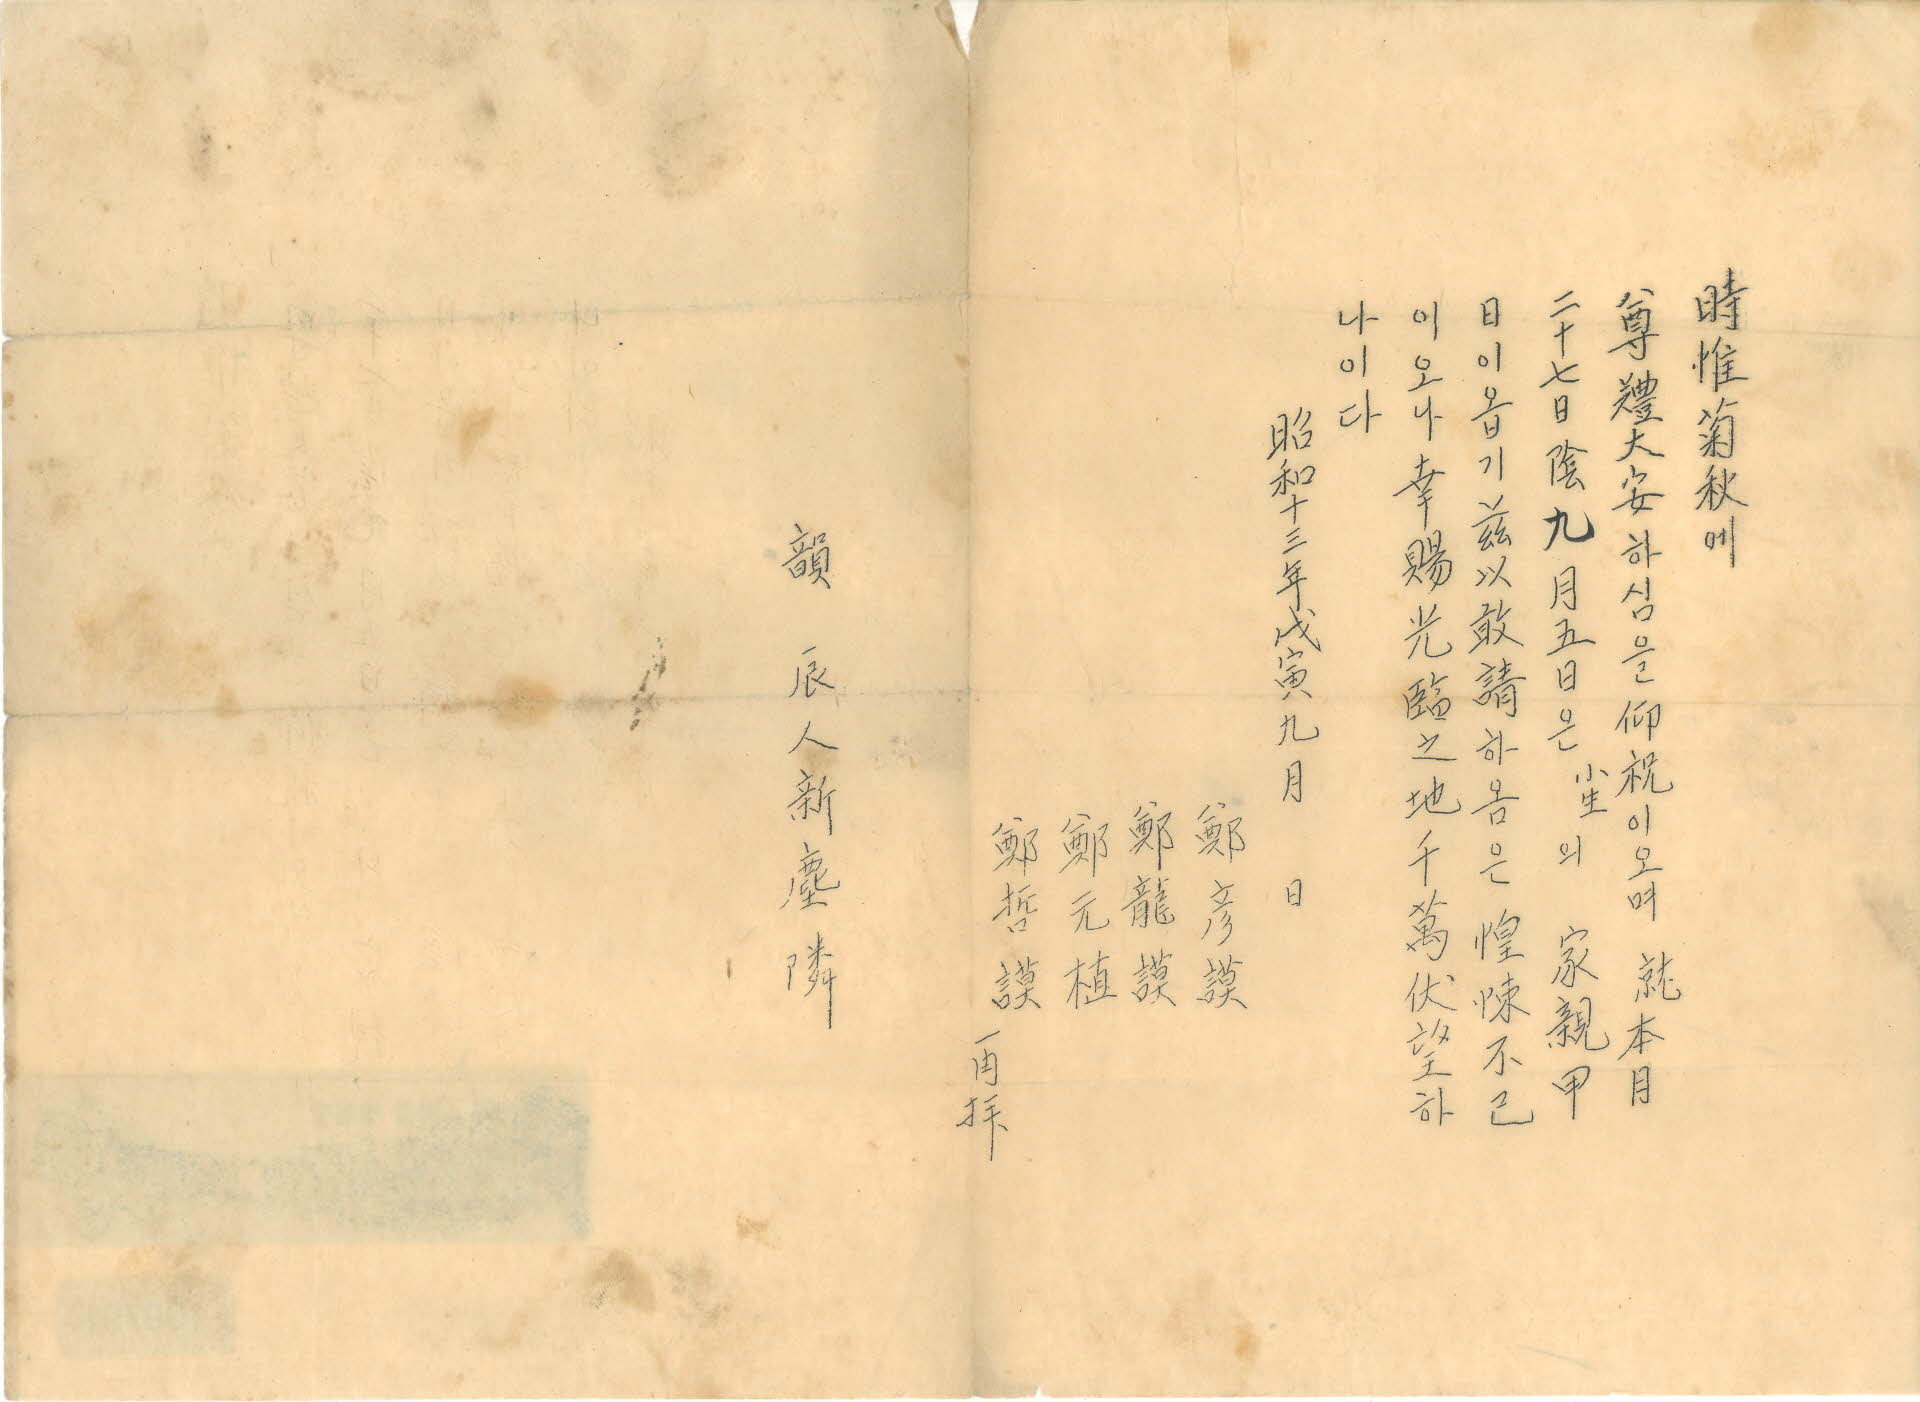 時惟菊秋에
尊軆大安하심을仰祝이오며 就本月
二十七日陰九月五日은 小生의 家親甲
日이옵기茲以敢請하옴은惶悚不已
이오나幸賜光臨之地千萬伏望하
나이다
昭和十三年戊寅九月 日
鄭彦謨
鄭龍謨
鄭元植
鄭哲謨 再拜
韻 辰人新塵隣